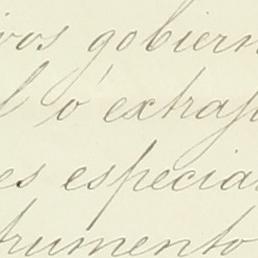 ivos gobiern
l ó extraj
es especia
trumento